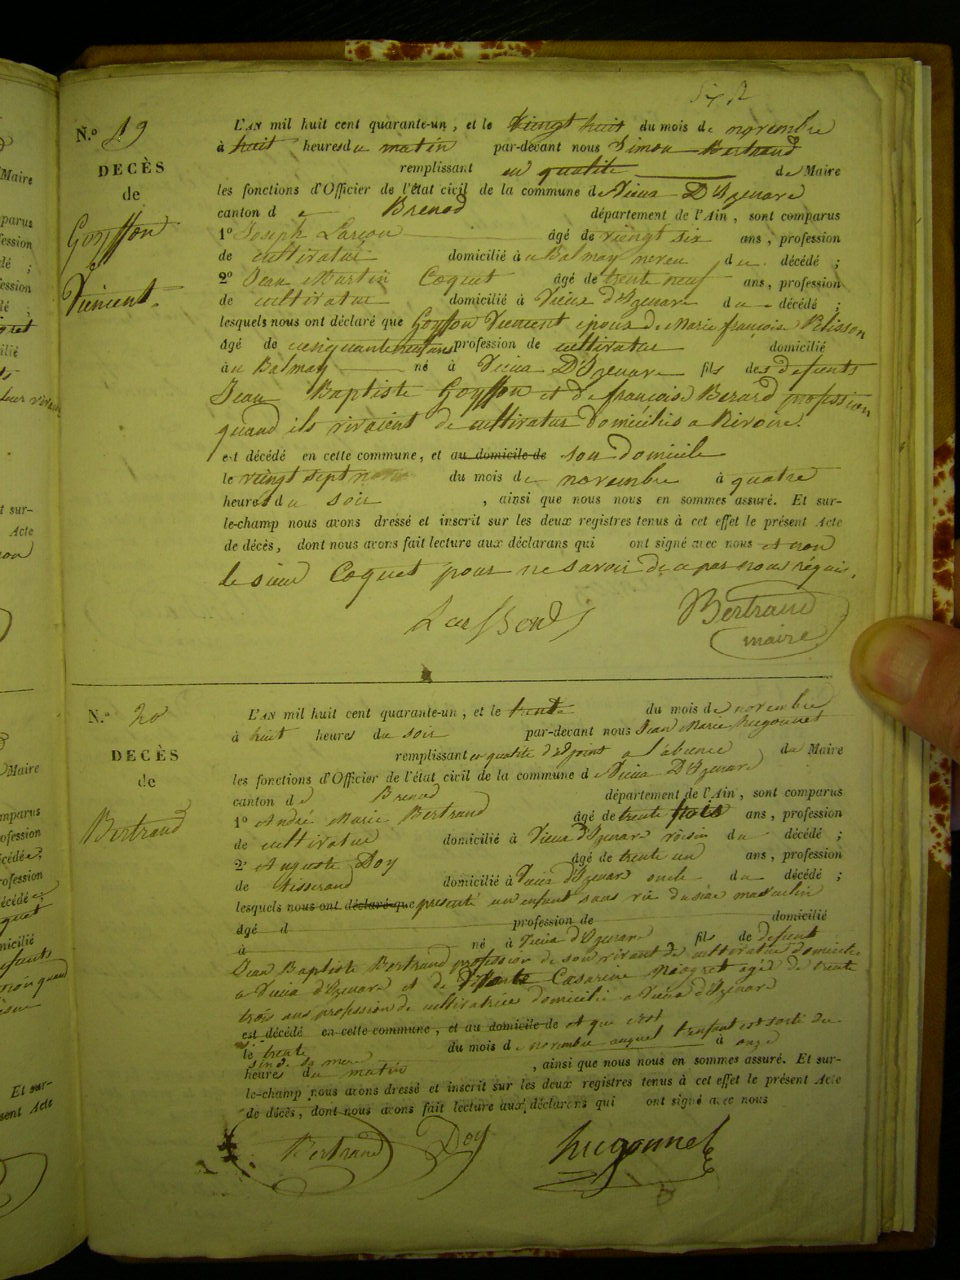 N.º 19
DECÈS
de
Goyffon
Vincent.
L'AN mil huit cent quarante-un, et le vingt huit du mois de novembre
à huit heures du matin par-devant nous Simon Bertrand
remplissant en qualité de Maire
les fonctions d'Officier de l'état civil de la commune de Vieux D'Izenave
canton de Brenod département de l'Ain, sont comparus
1º Joseph âgé de vingt six ans, profession
de cultivateur domicilié à Balmay neveu du décédé ;
2º Jean Martin Coquet âgé de trente neuf ans, profession
de cultivateur domicilié à Vieux d'Izenave du décédé ;
lesquels nous ont déclaré que Goyffon Vincent époux de Marie françoise Pelisson
âgé de cinquante ans profession de cultivateur domicilié
au Balmay né à Vieux D'Izenave fils des defunts
Jean Baptiste Goyffon et de françoise Berard profession
quand ils vivoient de cultivateur domiciliés a Rivoire.
est décédé en cette commune, et au domicile de son domicile
le vingt sept du mois de novembre à quatre
heures du soir , ainsi que nous nous en sommes assuré. Et sur-
le-champ nous avons dressé et inscrit sur les deux registres tenus à cet effet le présent Acte
de décès, dont nous avons fait lecture aux déclarans qui ont signé avec nous et non
le sieur Coquet pour ne savoir de ce par nous réquis.
Bertrand
maire
N.º 20
DECÈS
de
Bertrand
L'AN mil huit cent quarante-un, et le trente du mois de novembre
à huit heures du soir par-devant nous Jean Marie hugonnet
remplissant en qualité d'adjoint a l'absence du Maire
les fonctions d'Officier de l'état civil de la commune de Vieux D'Izenave
canton de Brenod département de l'Ain, sont comparus
1º André Marie Bertrand âgé de trente trois ans, profession
de cultivateur domicilié à Vieux d'Izenave voisin du décédé ;
2º Auguste Doy âgé de trente un ans, profession
de tisserand domicilié à Vieux d'Izenave oncle du décédé ;
lesquels nous ont déclaré que présenté un enfant sans vie du sexe masculin
âgé d profession de domicilié
à né à Vieux d'Izenave fils de defunt
Jean Baptiste Bertrand profession de son vivant de cultivateur domicilié
a Vieux d'Izenave et de Casarine agée de trente
trois ans profession de cultivatrice domicilié a Vieux d'Izenave
est décédé en cette commune, et au domicile de et que c'est
le trente du mois de novembre auquel l'enfant est sorti du
sein de sa mere à onze
heures du matin , ainsi que nous nous en sommes assuré. Et sur-
le-champ nous avons dressé et inscrit sur les deux registres tenus à cet effet le présent Acte
de décès, dont nous avons fait lecture aux déclarans qui ont signé avec nous
Bertrand Doy hugonnet